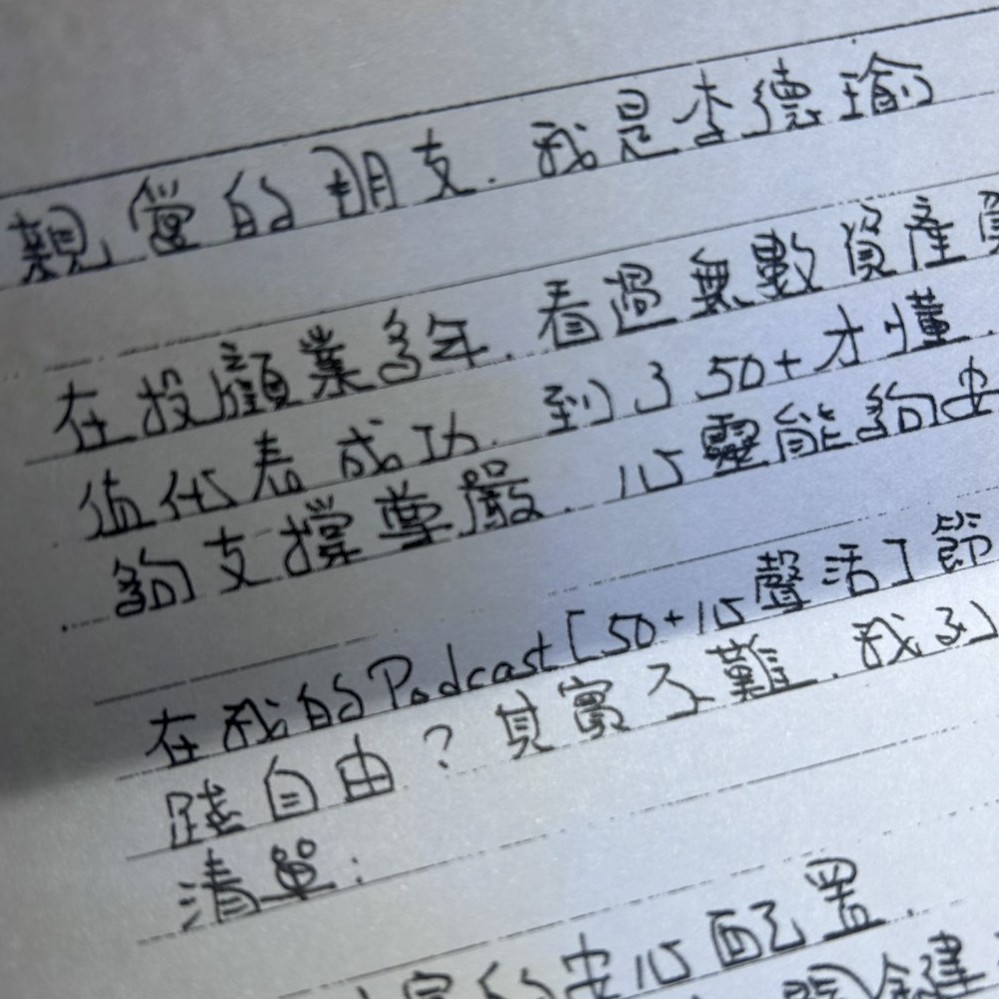 親愛的朋友．我是李德瑜
在投顧業多年．看過無數資產
值代表成功．到了50+才懂．
夠支撐尊嚴．心靈能夠安
在我的Podcast「50+心聲活」節
踐自由？其實不難．我列
清單：
的安心配置．
關鍵